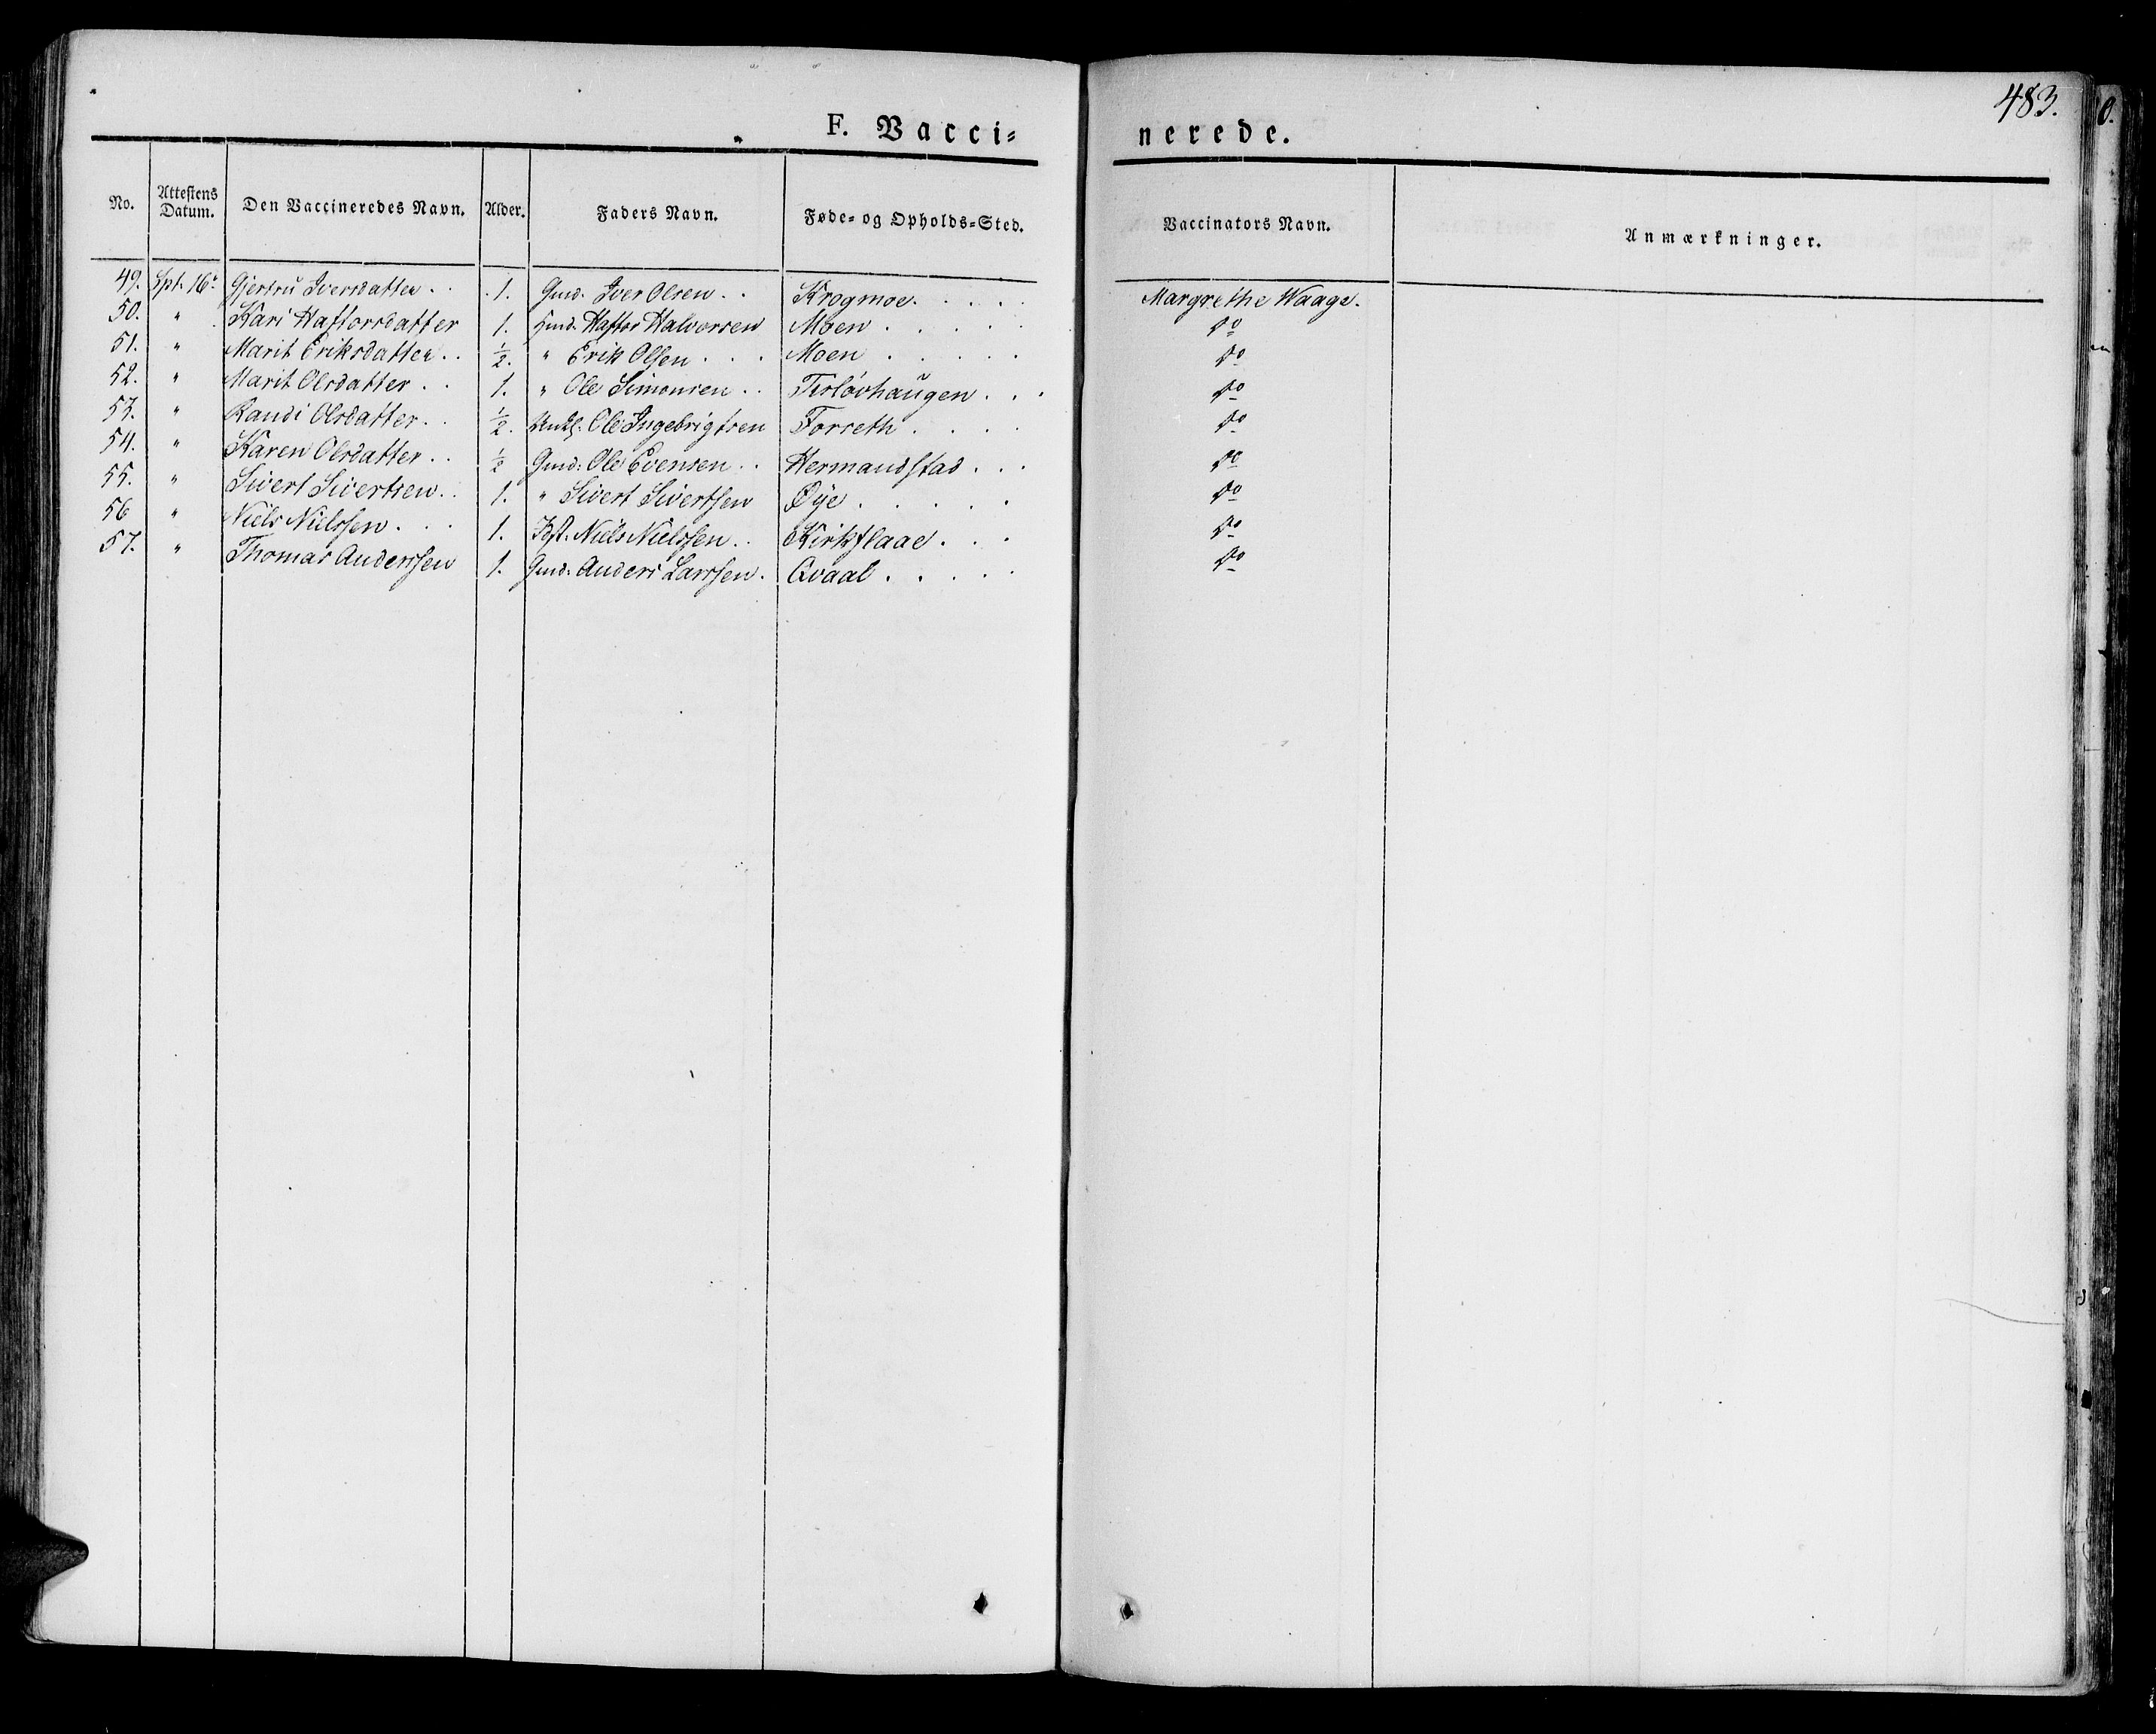 483.
F. Vacci= nerede.
No. Attestens Datum. Den Vaccineredes Navn. Alder. Faders Navn. Føde= og Opholds=Sted. Vaccinators Navn. Anmærkninger.
49. Spt. 16. Gjertru Iversdatter . . 1. Gmd. Iver Olsen . . Krogmoe. . . . . Margrethe Waage.
50. " Kari Haftorsdatter 1. Hmd. Haftor Halvorsen Moen . . . . . do
51. " Marit Eriksdatter . . ½. " Erik Olsen . . . Moen . . . . . do
52. " Marit Olsdatter . . 1. " Ole Simonsen . . Terløvhaugen . . . do
53. " Randi Olsdatter . . ½. Ole Ingebrigtsen Forseth . . . . do
54. " Karen Olsdatter . . ½ Gmd. Ole Evensen . . Hermandstad . . . do
55. " Sivert Sivertsen . . 1. " Sivert Sivertsen Øye . . . . . do
56 " Niels Nielsen . . . 1. Niels Nielsen . . Kirkflaae . . . do
57. " Thomas Anderssen 1. Gmd. Anders Larssen . Qvaal . . . . . do